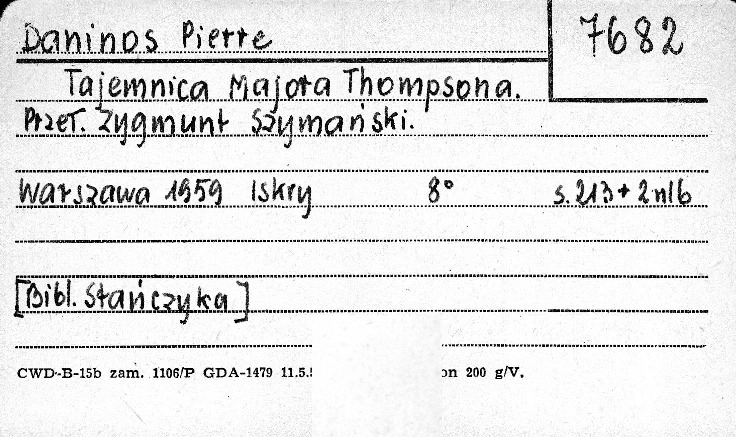 Daninos Pierre
7682
Tajemnica Majora Thompsona.
Przeł. Zygmunt Szymański.
Warszawa 1959 Iskry 8° s. 213 + 2 nlb
[Bibl. Stańczyka]
CWD-B-15b zam. 1106/P GDA-1479 11.5. on 200 g/V.